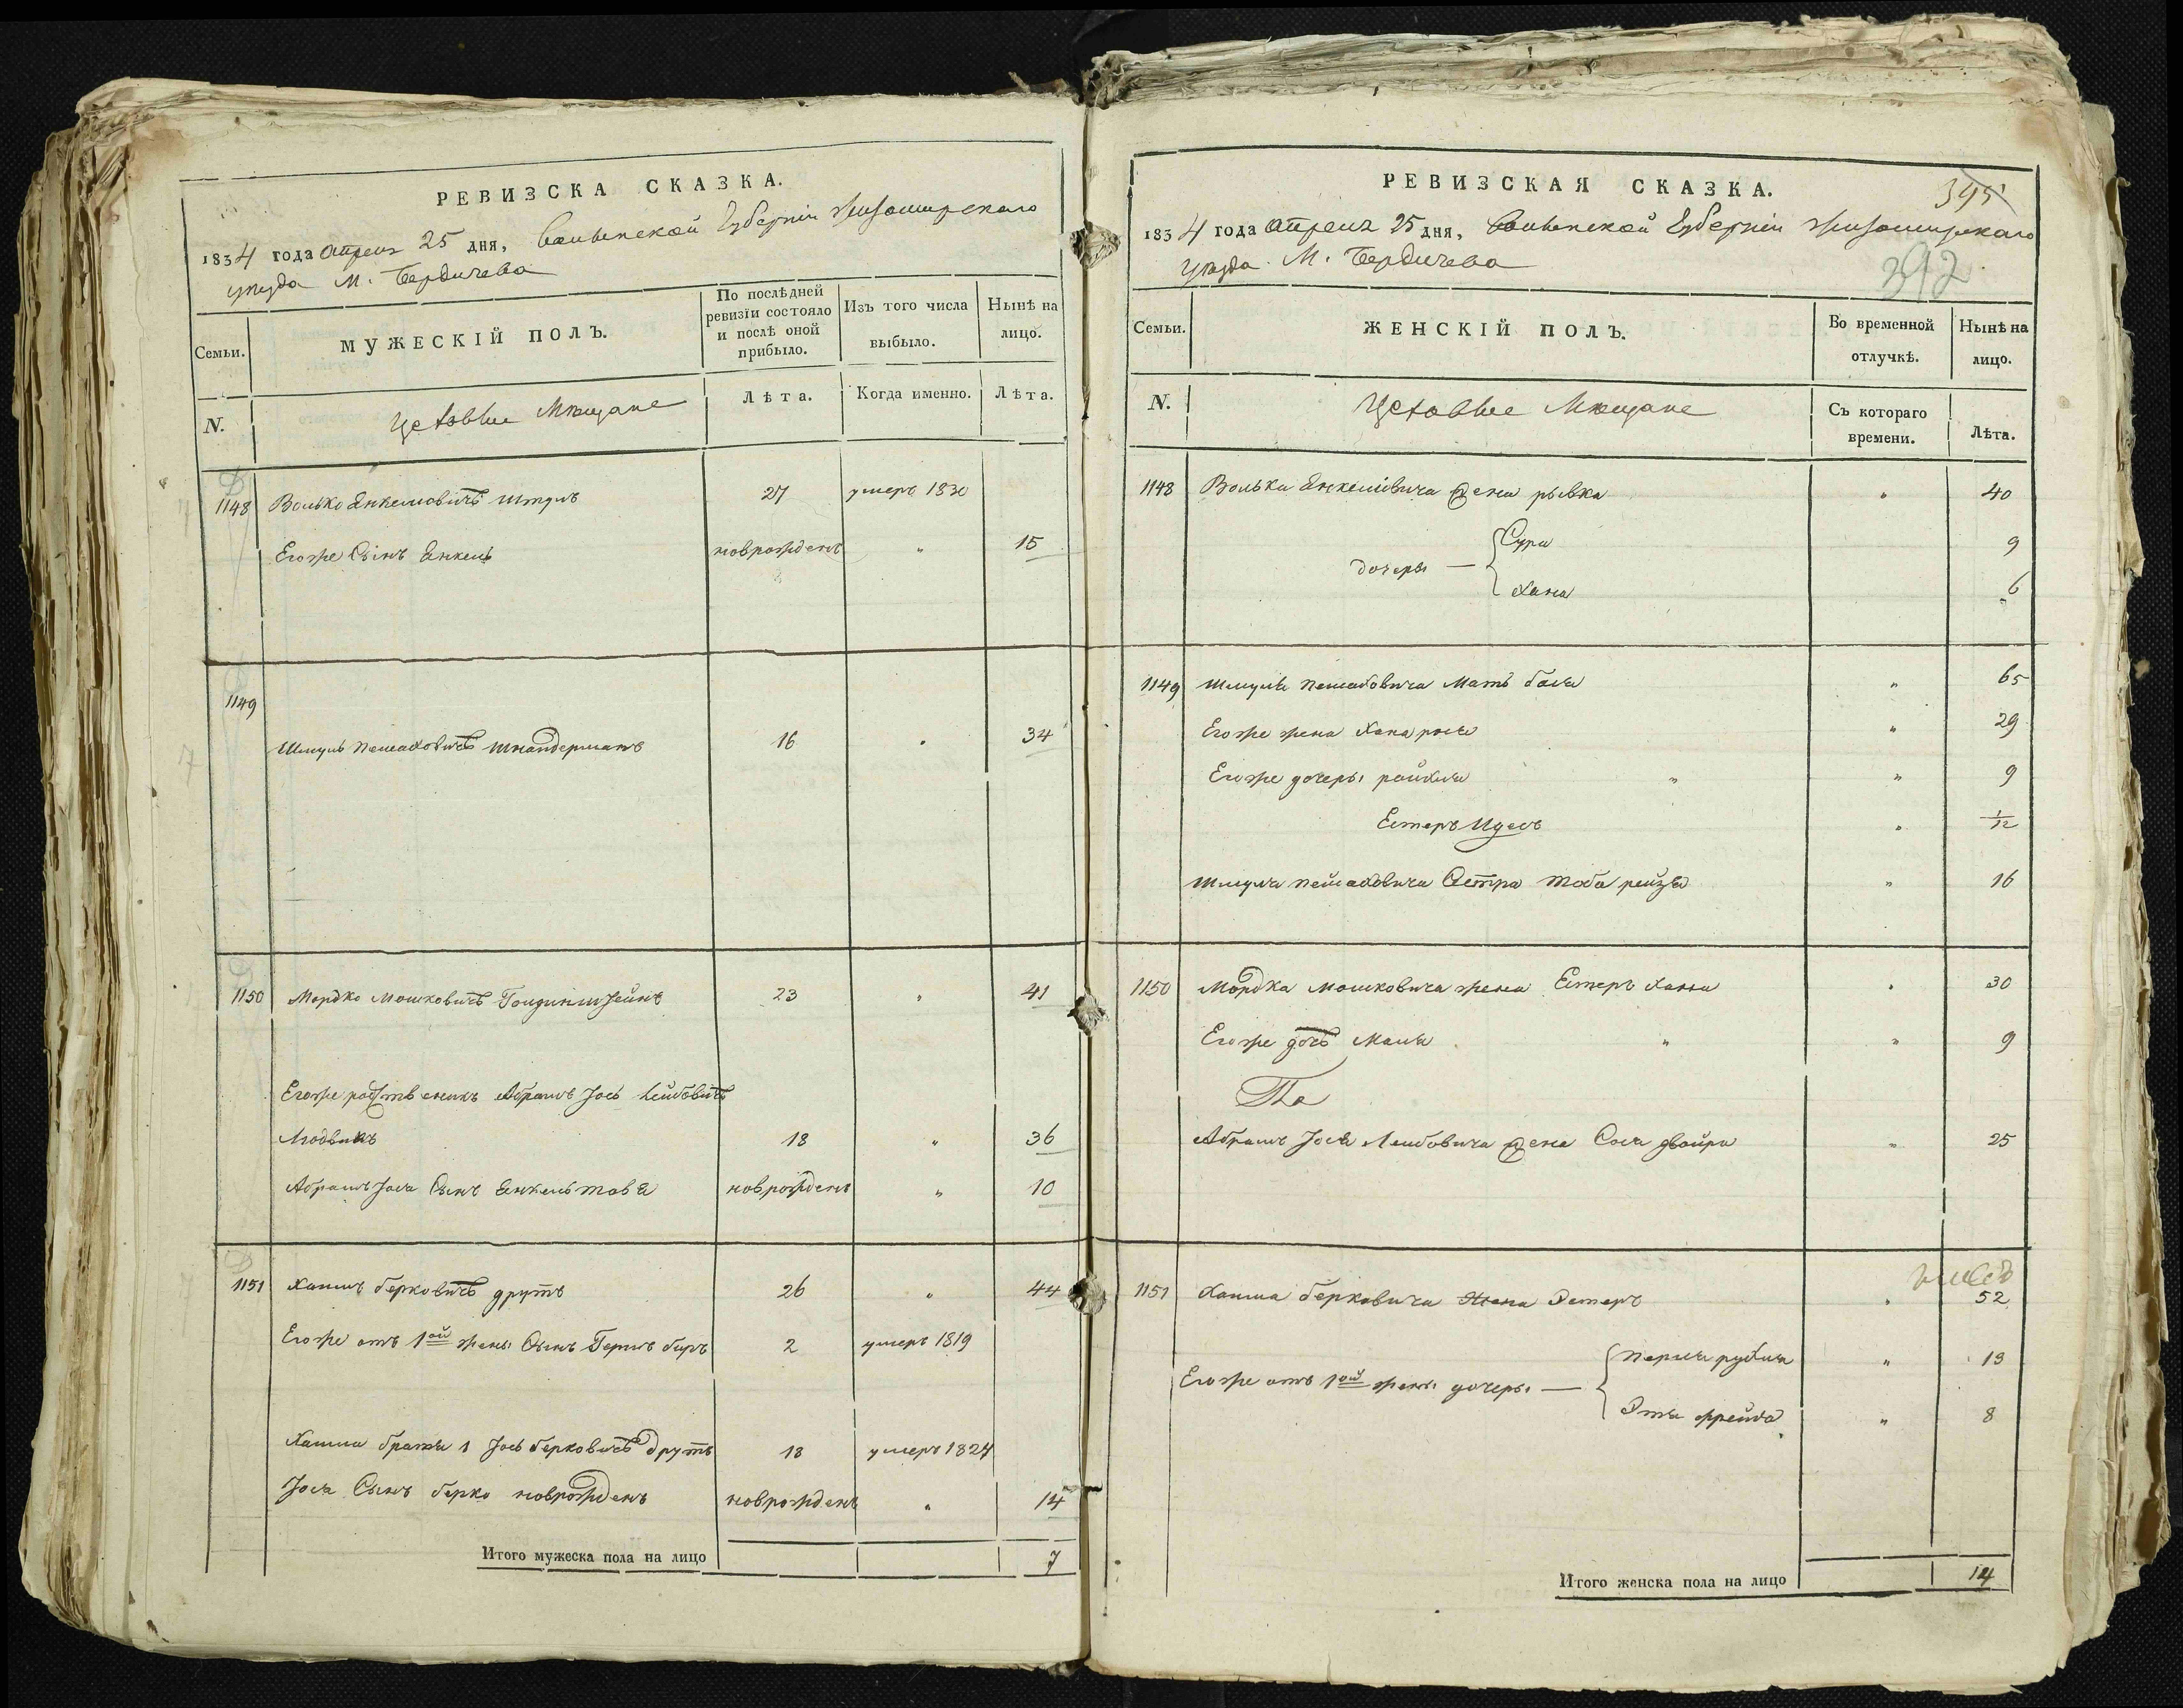 РЕВИЗСКА СКАЗКА.
1834 года Апреля 25 дня, Волынской Губернiи Житомирскаго
уезда М. Бердичева
Семьи.
МУЖЕСКІЙ ПОЛЪ.
По послѣдней
ревизіи состояло
и послѣ оной
прибыло.
Изъ того числа
выбыло.
Нынѣ на
лицо.
N.
Цеховые Мещане
Лѣта.
Когда именно.
Лѣта.
1148 Волько Янкелиовичъ Штулъ 27 умеръ 1830
Егоже Сынъ Янкель новрожденъ " 15
1149
Шмуль Пейсаховичъ Шнайдерманъ 16 " 34
1150 Мордко Мошковичъ 23 " 41
Егоже родственикъ Абрамъ Іось Лейбовичъ
Людвикъ 18 " 36
Абрамъ Іося Сынъ Янкель новрожденъ " 10
1151 Хаимъ Берковичъ Друтъ 26 " 44
Егоже отъ 1ой жены Сынъ Гершъ Беръ 2 умеръ 1819
Хаима братья 1 Іось Берковичъ Друтъ 18 умеръ 1824
Іося Сынъ Берко новрожденъ новрожденъ " 14
Итого мужеска пола на лицо 7
РЕВИЗСКАЯ СКАЗКА.
395
1834 года Апреля 25 дня, Волынской Губернiи Житомирскаго
уезда М. Бердичева
392
Семьи.
ЖЕНСКІЙ ПОЛЪ.
Во временной
отлучкѣ.
Нынѣ на
лицо.
N.
Цеховые Мещане
Съ котораго
времени.
Лѣта.
1148 Волька Янкелиовича жена рывка " 40
Сура 9
дочеры —
Хана 6
1149 Шмуля Пейсаховича Мать бася " 65
Егоже жена Хана " 29
Егоже дочеры райхля " " 9
Естеръ Идесъ " 1/12
Шмуля Пейсаховича Сетра Тоба рейзя " 16
1150 Мордка Мошковича жена Естеръ Ханна " 30
Егоже дочъ Маля " " 9
Абрамъ Іося Лейбовича жена Сося двойра " 25
1151 Хаима Берковича Жена Эстеръ " 52
Перля рухля " 13
Егоже отъ 1ой жены дочеры —
Этя фрейда " 8
Итого женска пола на лицо 14